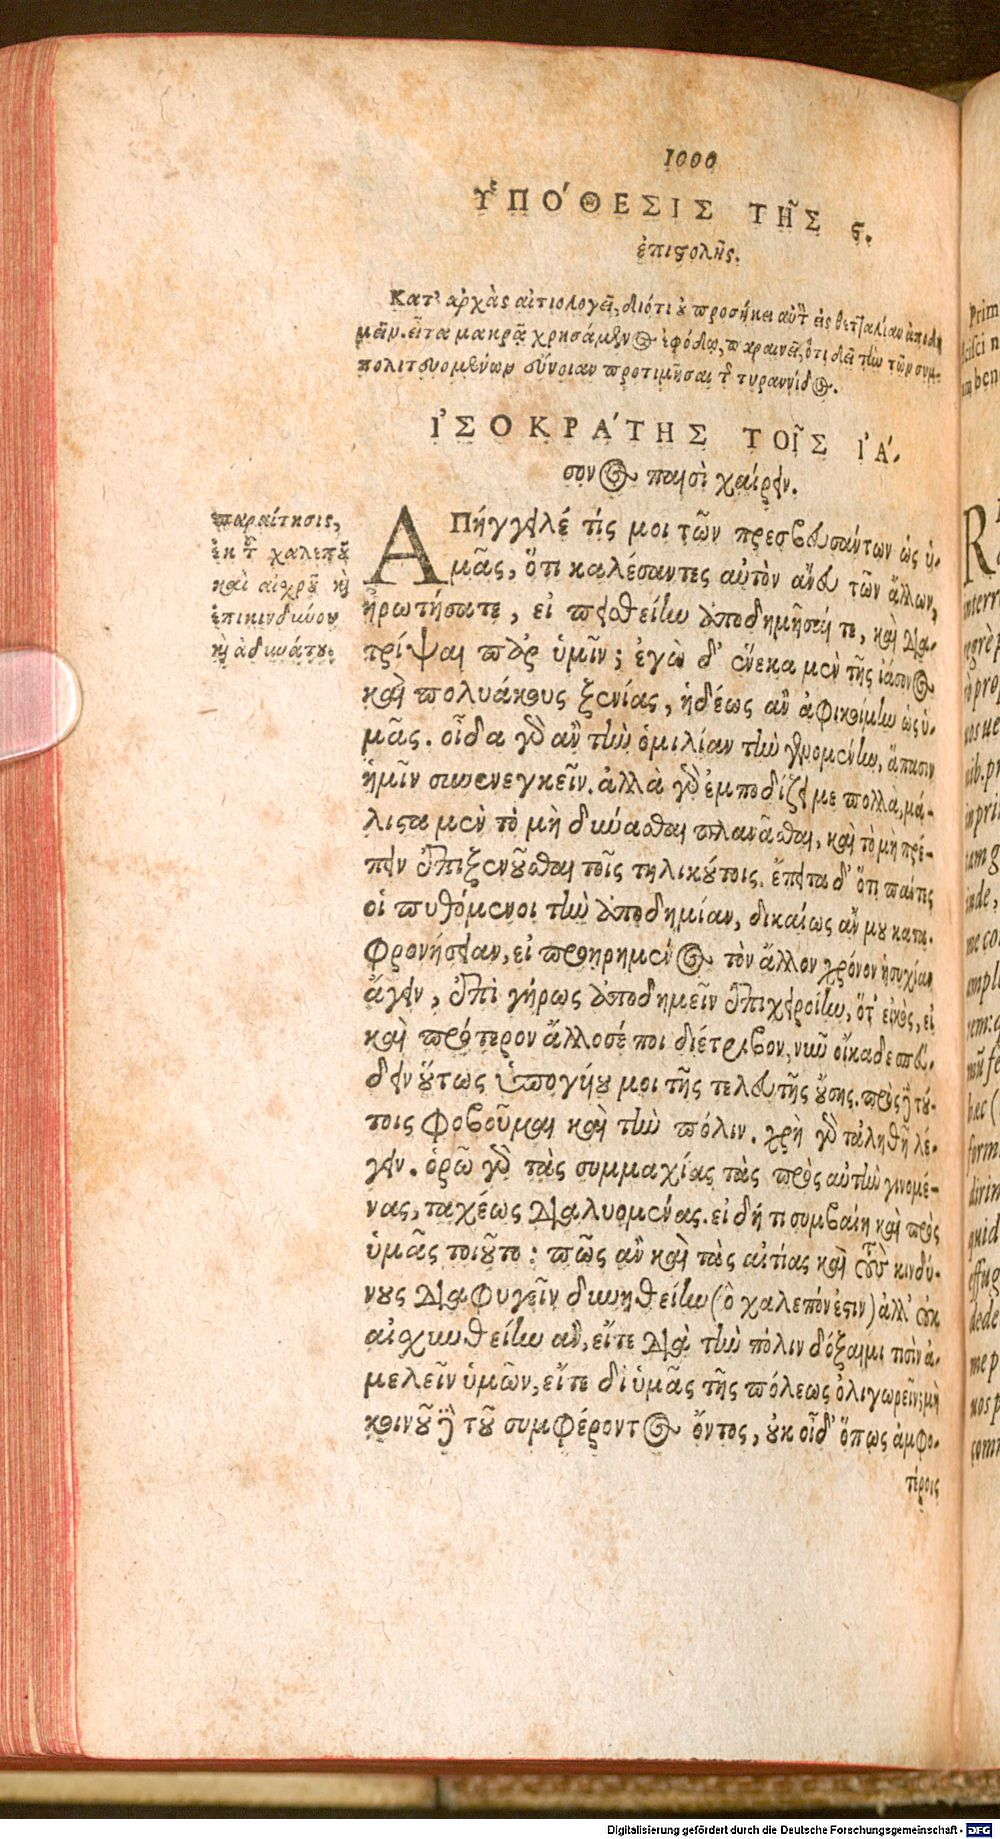 1000
ΥΠΌΘΕΣΙΣ ΤΗ͂Σ ϛ.
ἐπιστολῆς.
Κατ' ἀρχὰς αἰτιολογεῖ, διότι οὐ προσήκει αὐτῷ εἰς θετταλίαν ἀποδη
μεῖν. εἶτα μακρᾷ χρησάμενος ἐφόδῳ, παραινεῖ, ὅτι δεῖ τὴν τῶν συμ-
πολιτευομένων εὔνοιαν προτιμῆσαι τῆς τυραννίδος.
ἸΣΟΚΡΆΤΗΣ ΤΟΙ͂Σ ἸΆ-
σονος παισὶ χαίρειν.
παραίτησις,
ἐκ τοῦ χαλεποῦ
καὶ αἰσχροῦ καὶ
ἐπικινδύνου
καὶ ἀδυνάτου.
ΑΠήγγειλέ τίς μοι τῶν πρεσβευσάντων ὡς ὑ-
μᾶς, ὅτι καλέσαντες αὐτὸν ἄνευ τῶν ἄλλων,
ἠρωτήσατε, εἰ πεισθείην ἀποδημῆσαί τε, καὶ δια-
τρίψαι παρ' ὑμῖν; ἐγὼ δ' ἕνεκα μὲν τῆς ἰάσονος
καὶ πολυάκους ξενίας, ἡδέως ἂν ἀφικοίμην ὡς ὑ-
μᾶς. οἶδα γὰρ ἂν τὴν ὁμιλίαν τὴν γενομένην, ἅπασιν
ἡμῖν συνενεγκεῖν. ἀλλὰ γὰρ ἐμποδίζει με πολλὰ, μά-
λιστα μὲν τὸ μὴ δύνασθαι πλανᾶσθαι, καὶ τὸ μὴ πρέ-
πειν ἐπιξενοῦσθαι τοῖς τηλικούτοις. ἔπειτα δ' ὅτι πάντες
οἱ πυθόμενοι τὴν ἀποδημίαν, δικαίως ἄν μου κατα-
φρονήσειαν, εἰ προῃρημένος τὸν ἄλλον χρόνον ἡσυχίαν
ἄγειν, ἐπὶ γήρως ἀποδημεῖν ἐπιχειροίην, ὅτ' εἰκὸς, εἰ
καὶ πρότερον ἄλλοσέ ποι διέτριβον, νῦν οἴκαδε σπεύ-
δειν οὕτως ὑπογύου μοι τῆς τελευτῆς οὔσης. πρὸς δὲ τού-
τοις φοβοῦμαι καὶ τὴν πόλιν. χρὴ γὰρ τἀληθῆ λέ-
γειν. ὁρῶ γὰρ τὰς συμμαχίας τὰς πρὸς αὐτὴν γινομέ-
νας, ταχέως διαλυομένας. εἰ δή τι συμβαίη καὶ πρὸς
ὑμᾶς τοιοῦτο: πῶς ἂν καὶ τὰς αἰτίας καὶ τοὺς κινδύ-
νους διαφυγεῖν δυνηθείην (ὃ χαλεπόν ἐστιν) ἀλλ' οὖν
αἰσχυνθείην ἂν, εἴτε διὰ τὴν πόλιν δόξαιμι τισὶν ἀ-
μελεῖν ὑμῶν, εἴτε δι' ὑμᾶς τῆς πόλεως ὀλιγωρεῖν; μὴ
κοινοῦ δὲ τοῦ συμφέροντος ὄντος, οὐκ οἶδ' ὅπως ἀμφο-
τέροις
Digitalisierung gefördert durch die Deutsche Forschungsgemeinschaft - DFG